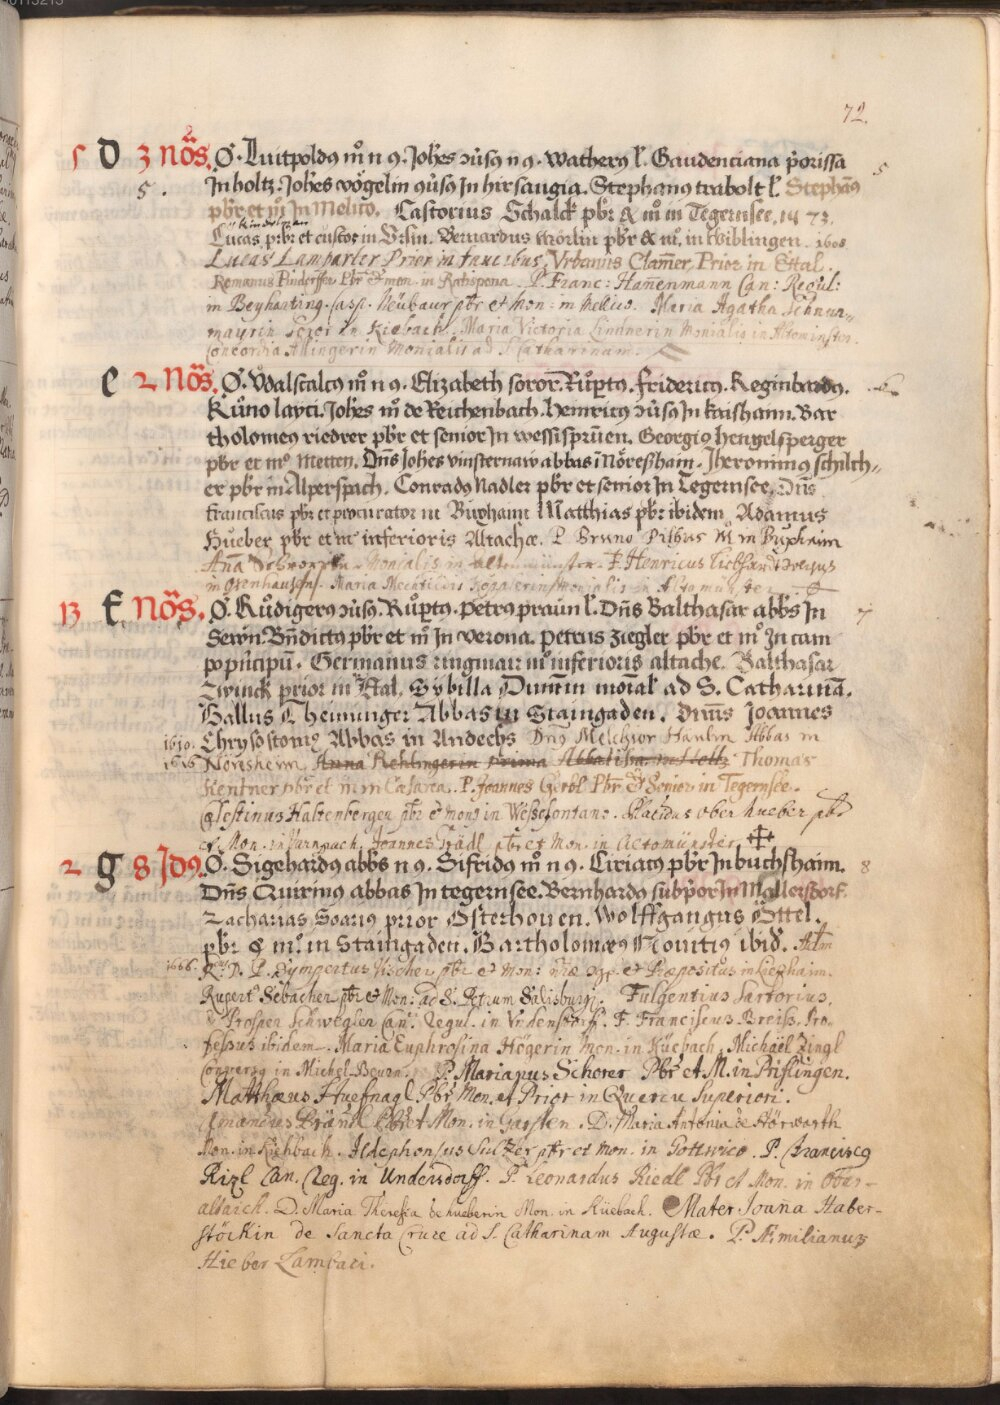 72.
5 D 3 Nōs. O. Luitpoldꝰ m̊ n ꝯ. Joh̄es ꝯv̄sꝰ n ꝯ. Watherꝰ l'. Gaudenciana p̄orissa 5
5. In holtz. Joh̄es vögelin ꝯv̄sꝰ In hirsaugia. Stephanꝰ trabolt l'. Stephanꝰ
pb̄r et m̊ In Melico. Castorius Schalck pb̄r & m̊ in Tegernsee. 1473.
Lucas pr̄br et custos in Vrsin. Bernardus Wörlin pb̄r & m̊. in Wiblingen. 1608
Lucas Lamparter Prior in faucibus, Vrbanus Clam̄er, Prior in Ettal.
Romanus Pindorffer Pb̄r & mon. in Ratispona. P. Franc: Hanenmann Can: Regul:
in Beyharting. Casp. Neübaur pb̄r et Mon: in Mellico. Maria Agatha Schnur„
mayrin Soror in Küebach. Maria Victoria Lindnerin Monialis in Altominster.
Concordia Allingerin Monialis ad S. Catharinam.
e 2 Nōs. O. Walscalcꝰ m̊ n ꝯ. Elizabeth soror. Růptꝰ. fridericꝰ. Reginbardꝰ. 6
Kůno layci. Joh̄es m̊ de Reichenbach. Heinricꝰ ꝯv̄sꝰ In kaishaim. Bar
tholomeꝰ riedrer pb̄r et senior In wessisprūen. Georgiꝰ hengelsperger
pb̄r et m̊ Metten. Dn̄s Joh̄es vinsternaw abbas ī Nöreßhaim. Jheronimꝰ schilch„
er pb̄r in Alperspach. Conradꝰ Nadler pb̄r et senior In Tegernsee. Dn̄s
franciscus pb̄r et procurator in Buxhaim Matthias pb̄r ibidem Adamus
Hüeber pb̄r et m̊ inferioris Altachæ. P. Bruno M. in Buxheim
Anā Monialis in F. Henricus
Maria Mechtildis Monialis in Altomünster
13 F Nōs. O. Růdigerꝰ ꝯv̄sꝰ. Růptꝰ. Petrꝰ praun l'. Dn̄s Balthasar abb̄s In 7
Sewn. Bn̄dictꝰ pb̄r et m̊ In verona. Petrus ziegler pb̄r et m̊ In cam
po p̄ncipū. Germanus ringmair m̊ inferioris altache. Balthasar
Zwinck prior in Etal. Sybilla Dum̄in mon̄al' ad S. Catharinā.
Gallus Theininger Abbas in Staingaden. Dn̄us Joannes
1610. Chrysostomꝰ Abbas in Andechs Dn̄s Melchior Hanlin Abbas in
1616 Neresheim. Anna Rehlingerin prima Abbatissa in Holtz Thomas
Kentner pb̄r et m in Cæsarea. P. Joannes Gerbl Pb̄r & Senior in Tegernsee.
Cælestinus Haltenberger pb̄r & mon9 in Wessefontano. Placidus oberhueber pb̄r
et Mon. in Furnpach Joannes Trädl pb̄r et Mon. in Altomünster
2 g 8 Jdꝰ. O. Sigehardꝰ abb̄s n ꝯ. Sifridꝰ m̊ n ꝯ. Ciriacꝰ pb̄r In buchshaim. 8
Dn̄s Quirinus abbas In tegernsee. Bernhardꝰ subp̄or In Mallersdorf.
Zacharias Soariꝰ prior Osterhouen. Wolffgangus Öttel.
pb̄r & m̊. in Staingaden. Bartholomæꝰ Nouitiꝰ ibid̄. Adm
1666. R. D. P. Sympertus Vischer pb̄r et Mon: et Præpositus in
Rupert' Sebacher pb̄r & Mon: ad S. Petrum Salisburgi. Fulgentius Sartorius,
& Prosper Schwegler Can. Regul. in Vndenstorff. F. Franciscus Breiss, Pro„
fessus ibidem. Maria Euphrosina Högerin Mon. in Küebach. Michaël Zingl
Conversꝰ in Michel-Beurn. P. Marianus Schorer Pb̄r et M. in Prifligen.
Matthæus Huefnagl Pb̄r Mon. et Prior in Quercu Superiori.
Amandus Pränl Pb̄r & Mon. in Garsten. D. Maria Antonia de Hörwarth
Mon. in Küehbach. Ildephonsus Sultzer pb̄r et mon. in Gottwico. P. Franciscꝰ
Rizl Can. Reg. in Understorff. P. Leonardus Riedl Pb̄r et Mon. in Ober-
altaich. D. Maria Theresia Schueberin Mon. in Küebach. Mater Joanna Haber-
stöckin de Sancta Cruce ad S. Catharinam Augustæ. P. Æmilianus
Hieber Lambaci.